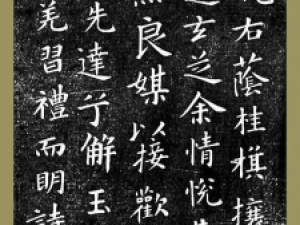 旄右蔭桂旗攘
玄芝余情悅
無良媒以接歡
先達兮解玉
羌習禮而明詩